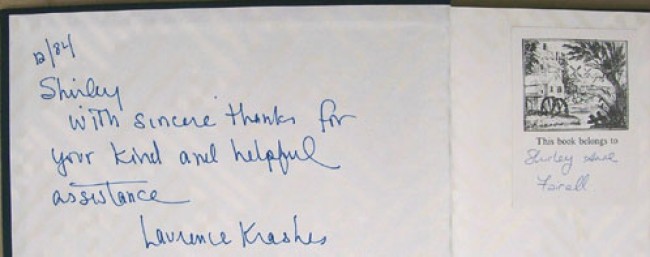 12/84
Shirley
with sincere thanks for
your kind and helpful
assistance
Laurence Krashes
This book belongs to
Shirley Anne